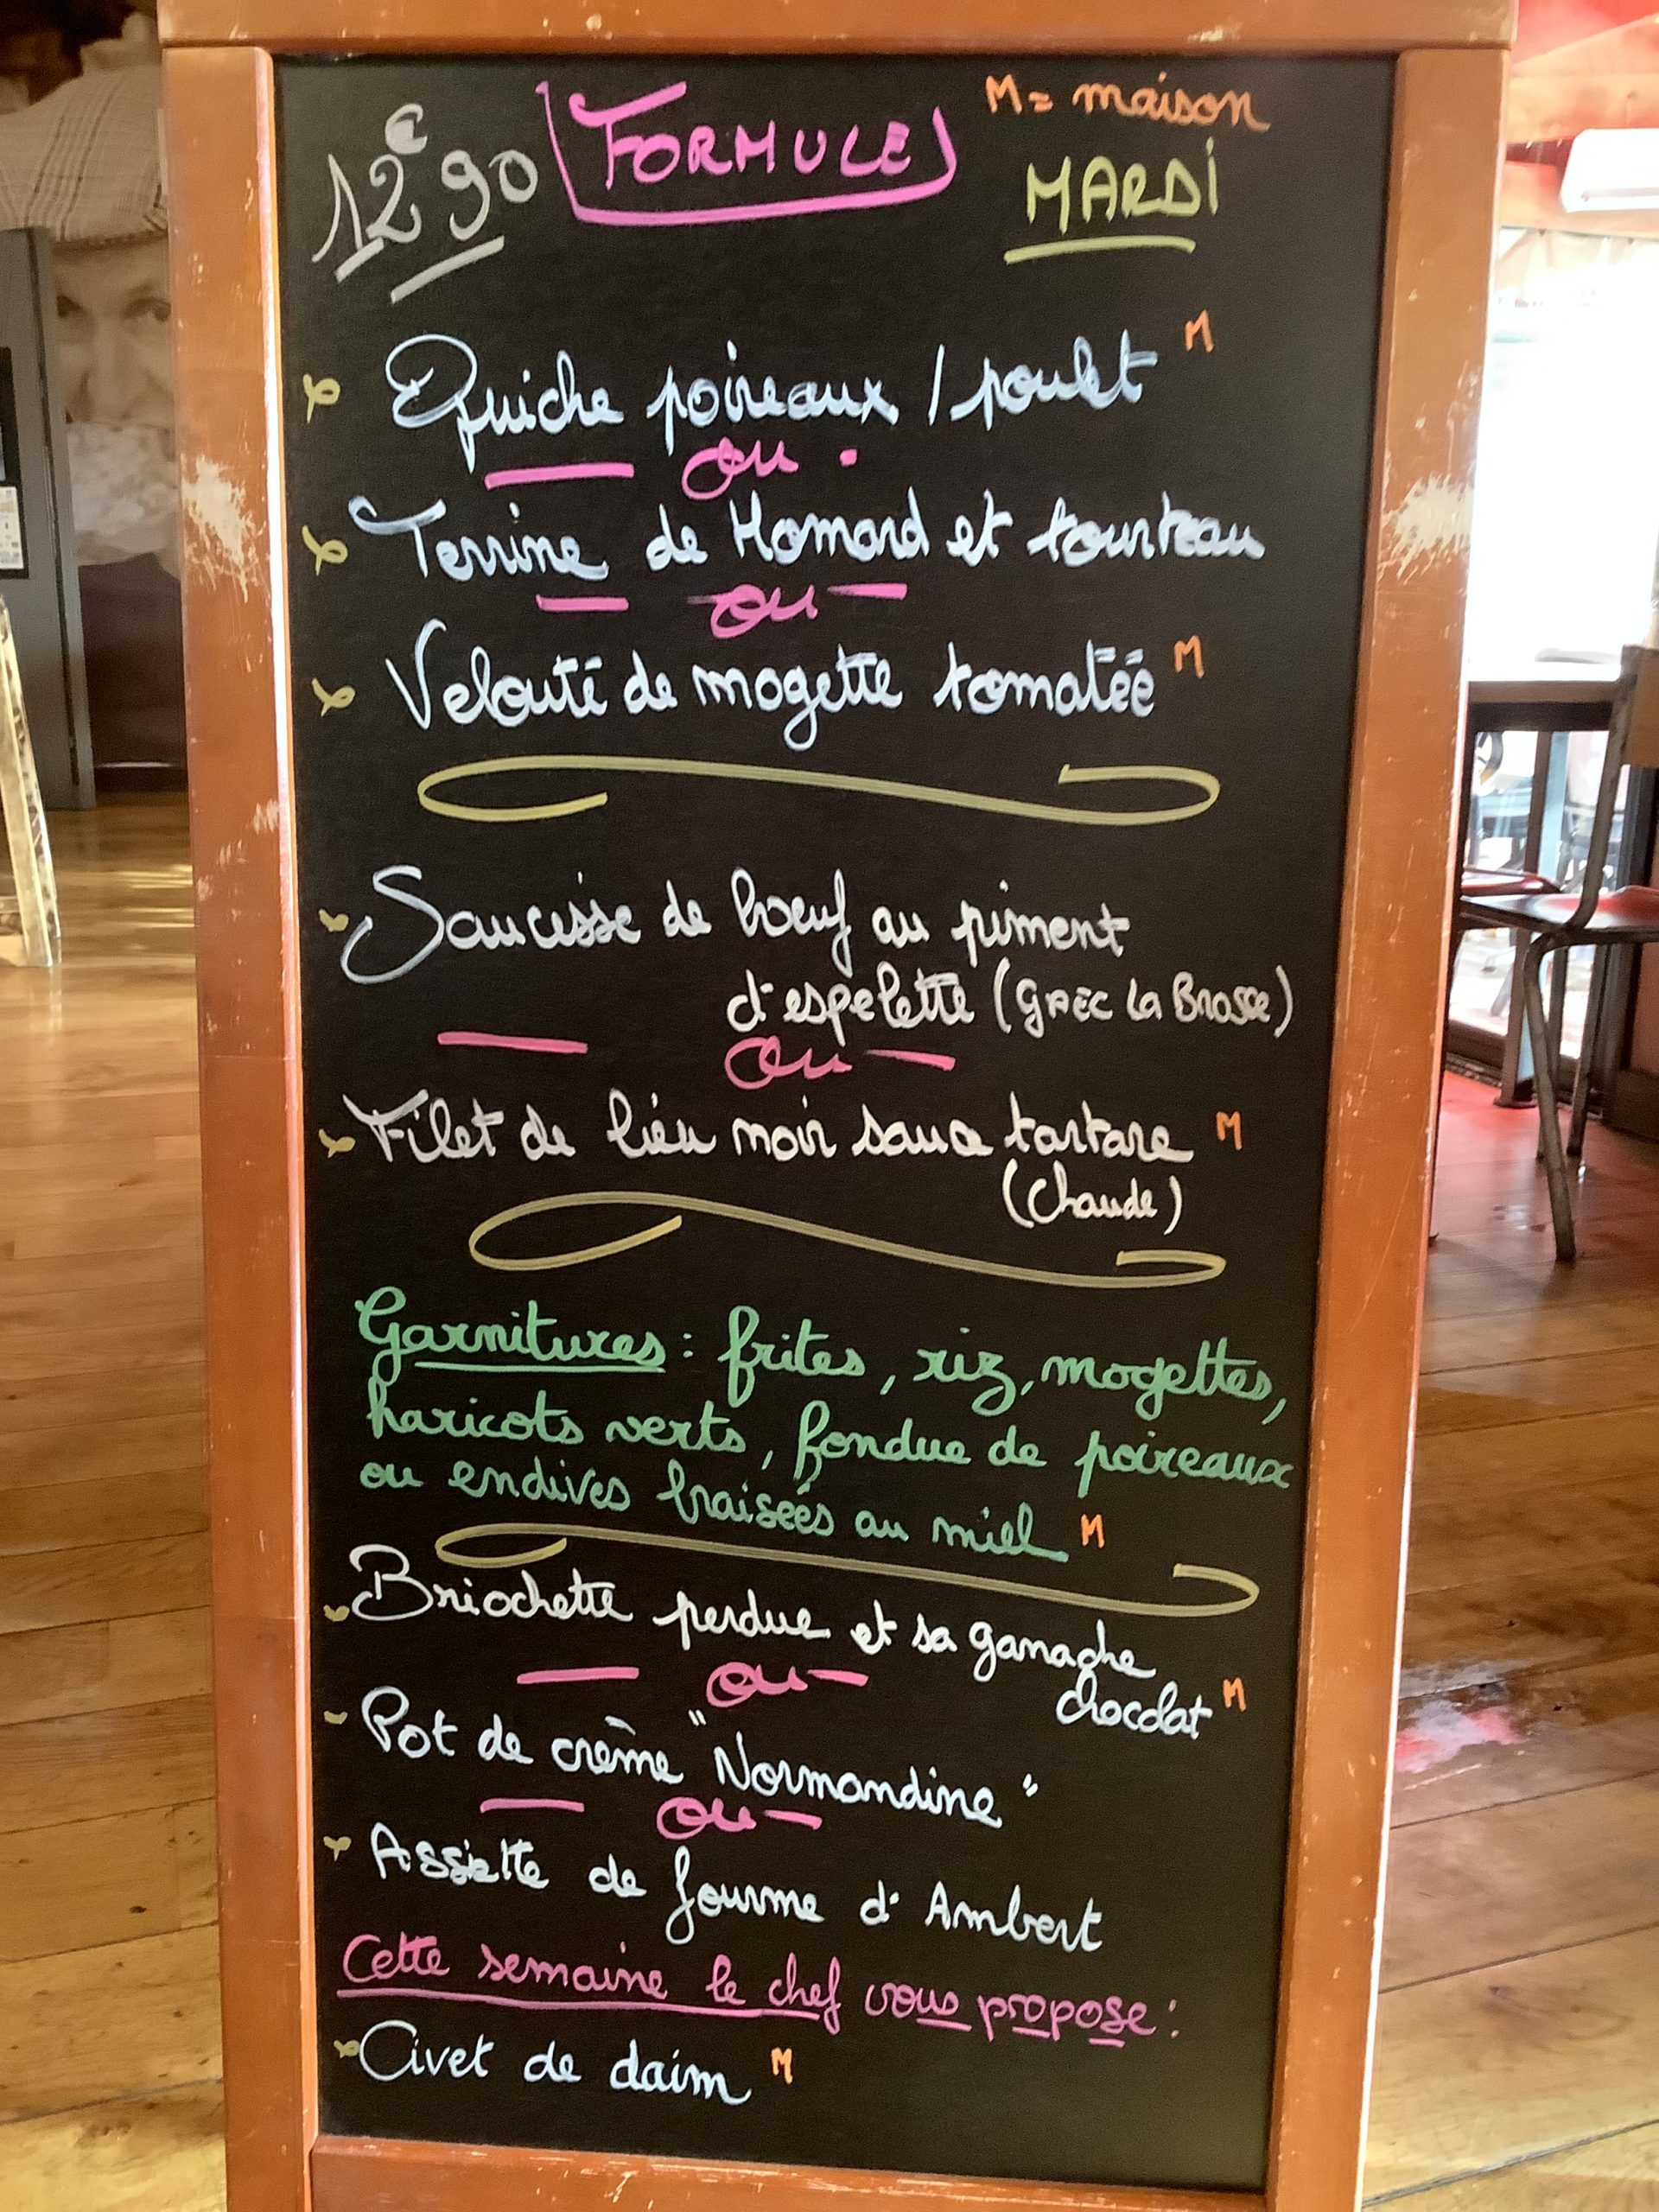 12€90 FORMULE M= maison
MARDI
Quiche poireaux / poulet M
ou
Terrine de Homard et tourteau
ou
Velouté de mogette tomatée M
Saucisse de boeuf au piment
d'espelette (GAEC La Brosse)
ou
Filet de lieu noir sauce tartare M
(Chaude)
Garnitures : frites, riz, mogettes,
haricots verts, fondue de poireaux
ou endives braisées au miel M
Briochette perdue et sa ganache
chocolat M
ou
Pot de crème "Normandine"
ou
Assiette de fourme d'Ambert
Cette semaine le chef vous propose :
Civet de daim M